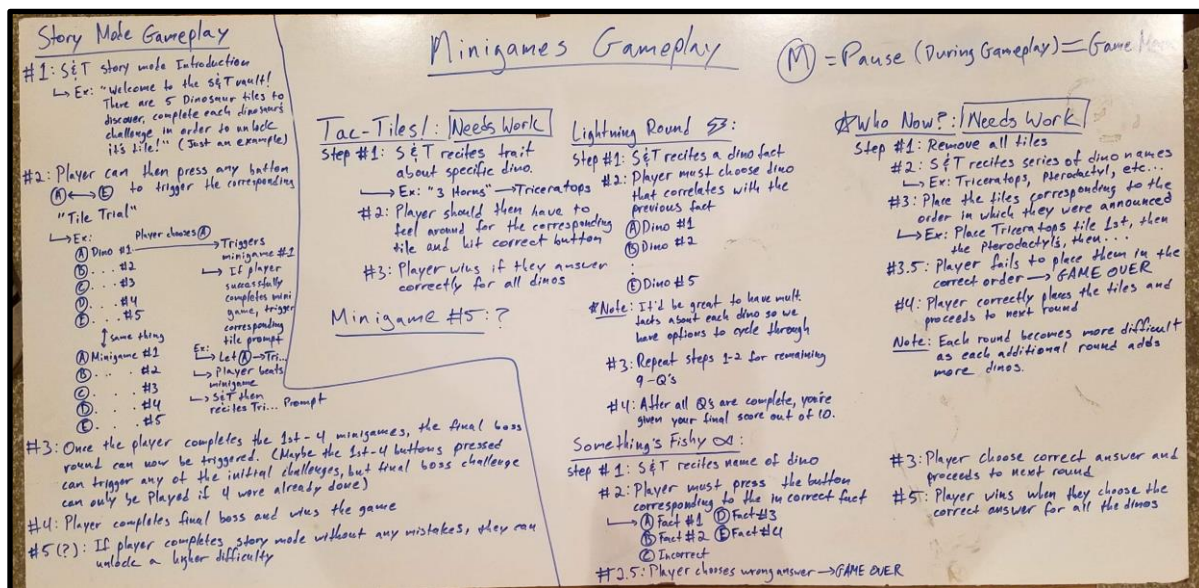 Story Mode Gameplay
#1: S&T story mode Introduction
↳ Ex: "Welcome to the S&T vault!
There are 5 Dinosaur tiles to
discover, complete each dinosaur's
challenge in order to unlock
it's tile!" (Just an example)
#2: Player can then press any button
Ⓐ↔Ⓔ to trigger the corresponding
"Tile Trial"
↳ Ex: Player chooses Ⓐ
Ⓐ Dino #1 → Triggers
minigame #1
Ⓑ . . . #2
Ⓒ . . . #3
Ⓓ . . . #4
Ⓔ . . . #5
↳ If player
successfully
completes mini
game, trigger
corresponding
tile prompt
↕ same thing
Ⓐ Minigame #1
Ⓑ . . . #2
Ⓒ . . . #3
Ⓓ . . . #4
Ⓔ . . . #5
Ex:
↳ Let Ⓐ → Tri...
↳ Player beats
minigame
↳ S&T then
recites Tri... Prompt
#3: Once the player completes the 1st-4 minigames, the final boss
round can now be triggered. (Maybe the 1st-4 buttons pressed
can trigger any of the initial challenges, but final boss challenge
can only be played if 4 were already done)
#4: Player completes final boss and wins the game
#5(?): If player completes story mode without any mistakes, they can
unlock a higher difficulty
Minigames Gameplay
Ⓜ = Pause (During Gameplay) = Game
Tac-Tiles!: Needs Work
Step #1: S&T recites trait
about specific dino.
↳ Ex: "3 Horns" → Triceratops
#2: Player should then have to
feel around for the corresponding
tile and hit correct button
#3: Player wins if they answer
correctly for all dinos
Minigame #5: ?
Lightning Round :
Step #1: S&T recites a dino fact
#2: Player must choose dino
that correlates with the
previous fact
Ⓐ Dino #1
Ⓑ Dino #2
:
Ⓔ Dino #5
*Note: It'd be great to have mult.
facts about each dino so we
have options to cycle through
#3: Repeat steps 1-2 for remaining
9-Q's
#4: After all Q's are complete, you're
given your final score out of 10.
Something's Fishy :
Step #1: S&T recites name of dino
#2: Player must press the button
corresponding to the incorrect fact
↳ Ⓐ Fact #1 Ⓓ Fact #3
Ⓑ Fact #2 Ⓔ Fact #4
Ⓒ Incorrect
#2.5: Player chooses wrong answer → GAME OVER
#3: Player choose correct answer and
proceeds to next round
#5: Player wins when they choose the
correct answer for all the dinos
☆Who Now?: Needs Work
Step #1: Remove all tiles
#2: S&T recites series of dino names
↳ Ex: Triceratops, Pterodactyl, etc...
#3: Place the tiles corresponding to the
order in which they were announced
↳ Ex: Place Triceratops tile 1st, then
the Pterodactyls, then...
#3.5: Player fails to place them in the
correct order → GAME OVER
#4: Player correctly places the tiles and
proceeds to next round
Note: Each round becomes more difficult
as each additional round adds
more dinos.